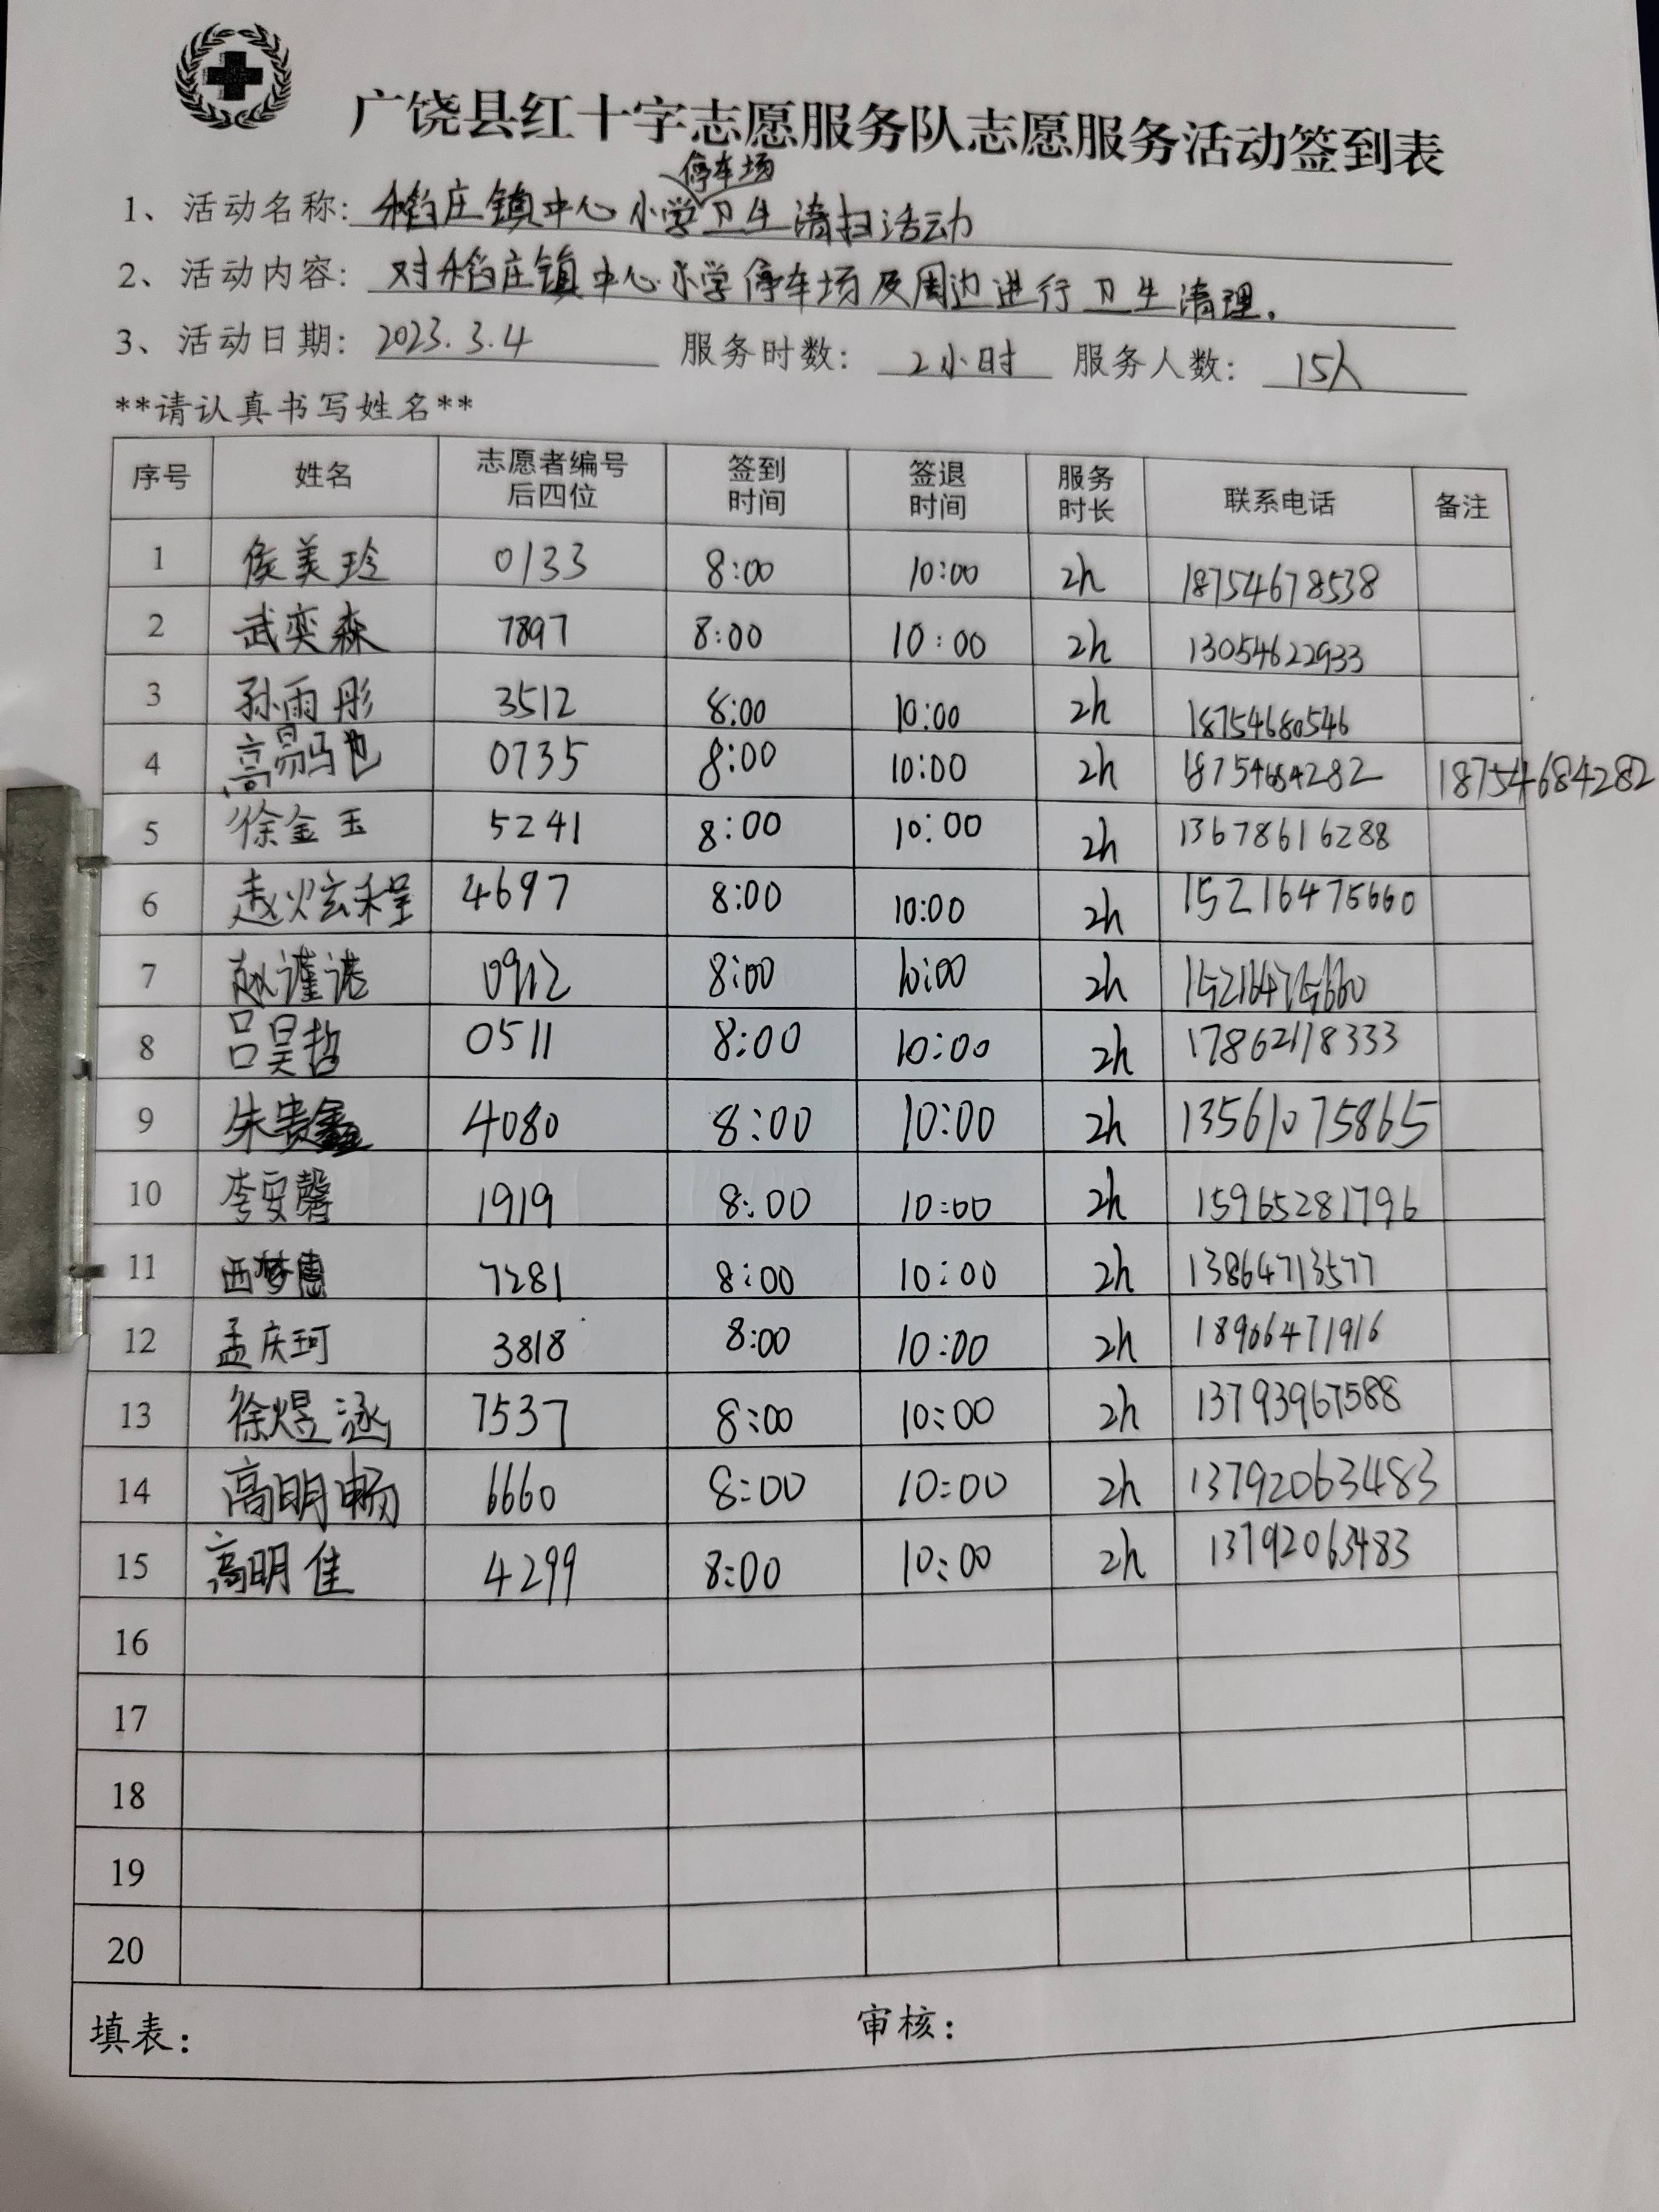 广饶县红十字志愿服务队志愿服务活动签到表
停车场
1、活动名称: 稻庄镇中心小学卫生清扫活动
2、活动内容: 对稻庄镇中心小学停车场及周边进行卫生清理。
3、活动日期: 2023.3.4 服务时数: 2小时 服务人数: 15人
**请认真书写姓名**
序号 姓名 志愿者编号后四位 签到时间 签退时间 服务时长 联系电话 备注
1 侯美玲 0133 8:00 10:00 2h 18754678538
2 武奕森 7897 8:00 10:00 2h 13054622933
3 孙雨彤 3512 8:00 10:00 2h 18754680546
4 高易驰 0735 8:00 10:00 2h 18754684282 18754684282
5 徐金玉 5241 8:00 10:00 2h 13678616288
6 赵炫程 4697 8:00 10:00 2h 15216475660
7 赵谨诺 0912 8:00 10:00 2h 15216475660
8 吕昊哲 0511 8:00 10:00 2h 17862118333
9 朱贵鑫 4080 8:00 10:00 2h 13561075865
10 李安馨 1919 8:00 10:00 2h 15965281796
11 西梦 7281 8:00 10:00 2h 13864713577
12 孟庆珂 3818 8:00 10:00 2h 18906471916
13 徐煜涵 7537 8:00 10:00 2h 13793967588
14 高明畅 6660 8:00 10:00 2h 13792063483
15 高明佳 4299 8:00 10:00 2h 13792063483
16
17
18
19
20
填表: 审核: